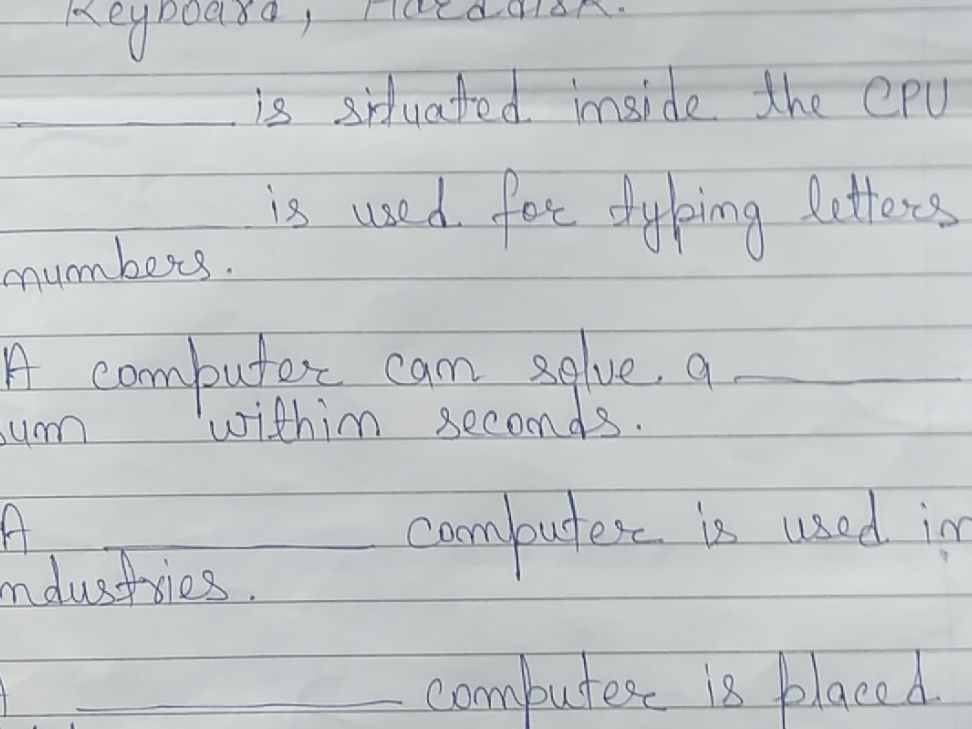 Keyboard, Harddisk.
is situated inside the CPU
is used for typing letters
numbers.
A computer can solve a
sum within seconds.
A computer is used in
ndustries.
computer is placed